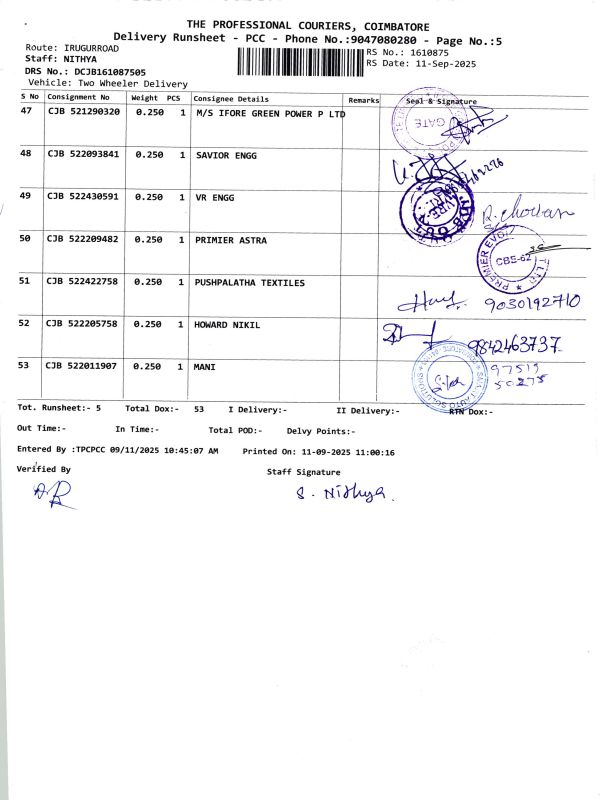 THE PROFESSIONAL COURIERS, COIMBATORE
Delivery Runsheet - PCC - Phone No.:9047080280 - Page No.:5
Route: IRUGURROAD
RS No.: 1610875
Staff: NITHYA
RS Date: 11-Sep-2025
DRS No.: DCJB161087505
Vehicle: Two Wheeler Delivery
S No Consignment No Weight PCS Consignee Details Remarks Seal & Signature
47 CJB 521290320 0.250 1 M/S IFORE GREEN POWER P LTD
GATE
48 CJB 522093841 0.250 1 SAVIOR ENGG
49 CJB 522430591 0.250 1 VR ENGG
50 CJB 522209482 0.250 1 PRIMIER ASTRA
PREMIER EVOL
CBE-62
T LTD
51 CJB 522422758 0.250 1 PUSHPALATHA TEXTILES
9030192710
52 CJB 522205758 0.250 1 HOWARD NIKIL
9842463737
53 CJB 522011907 0.250 1 MANI
97519
50275
Tot. Runsheet:- 5 Total Dox:- 53 I Delivery:- II Delivery:- RTN Dox:-
Out Time:- In Time:- Total POD:- Delvy Points:-
Entered By :TPCPCC 09/11/2025 10:45:07 AM Printed On: 11-09-2025 11:00:16
Verified By Staff Signature
S. Nithya.